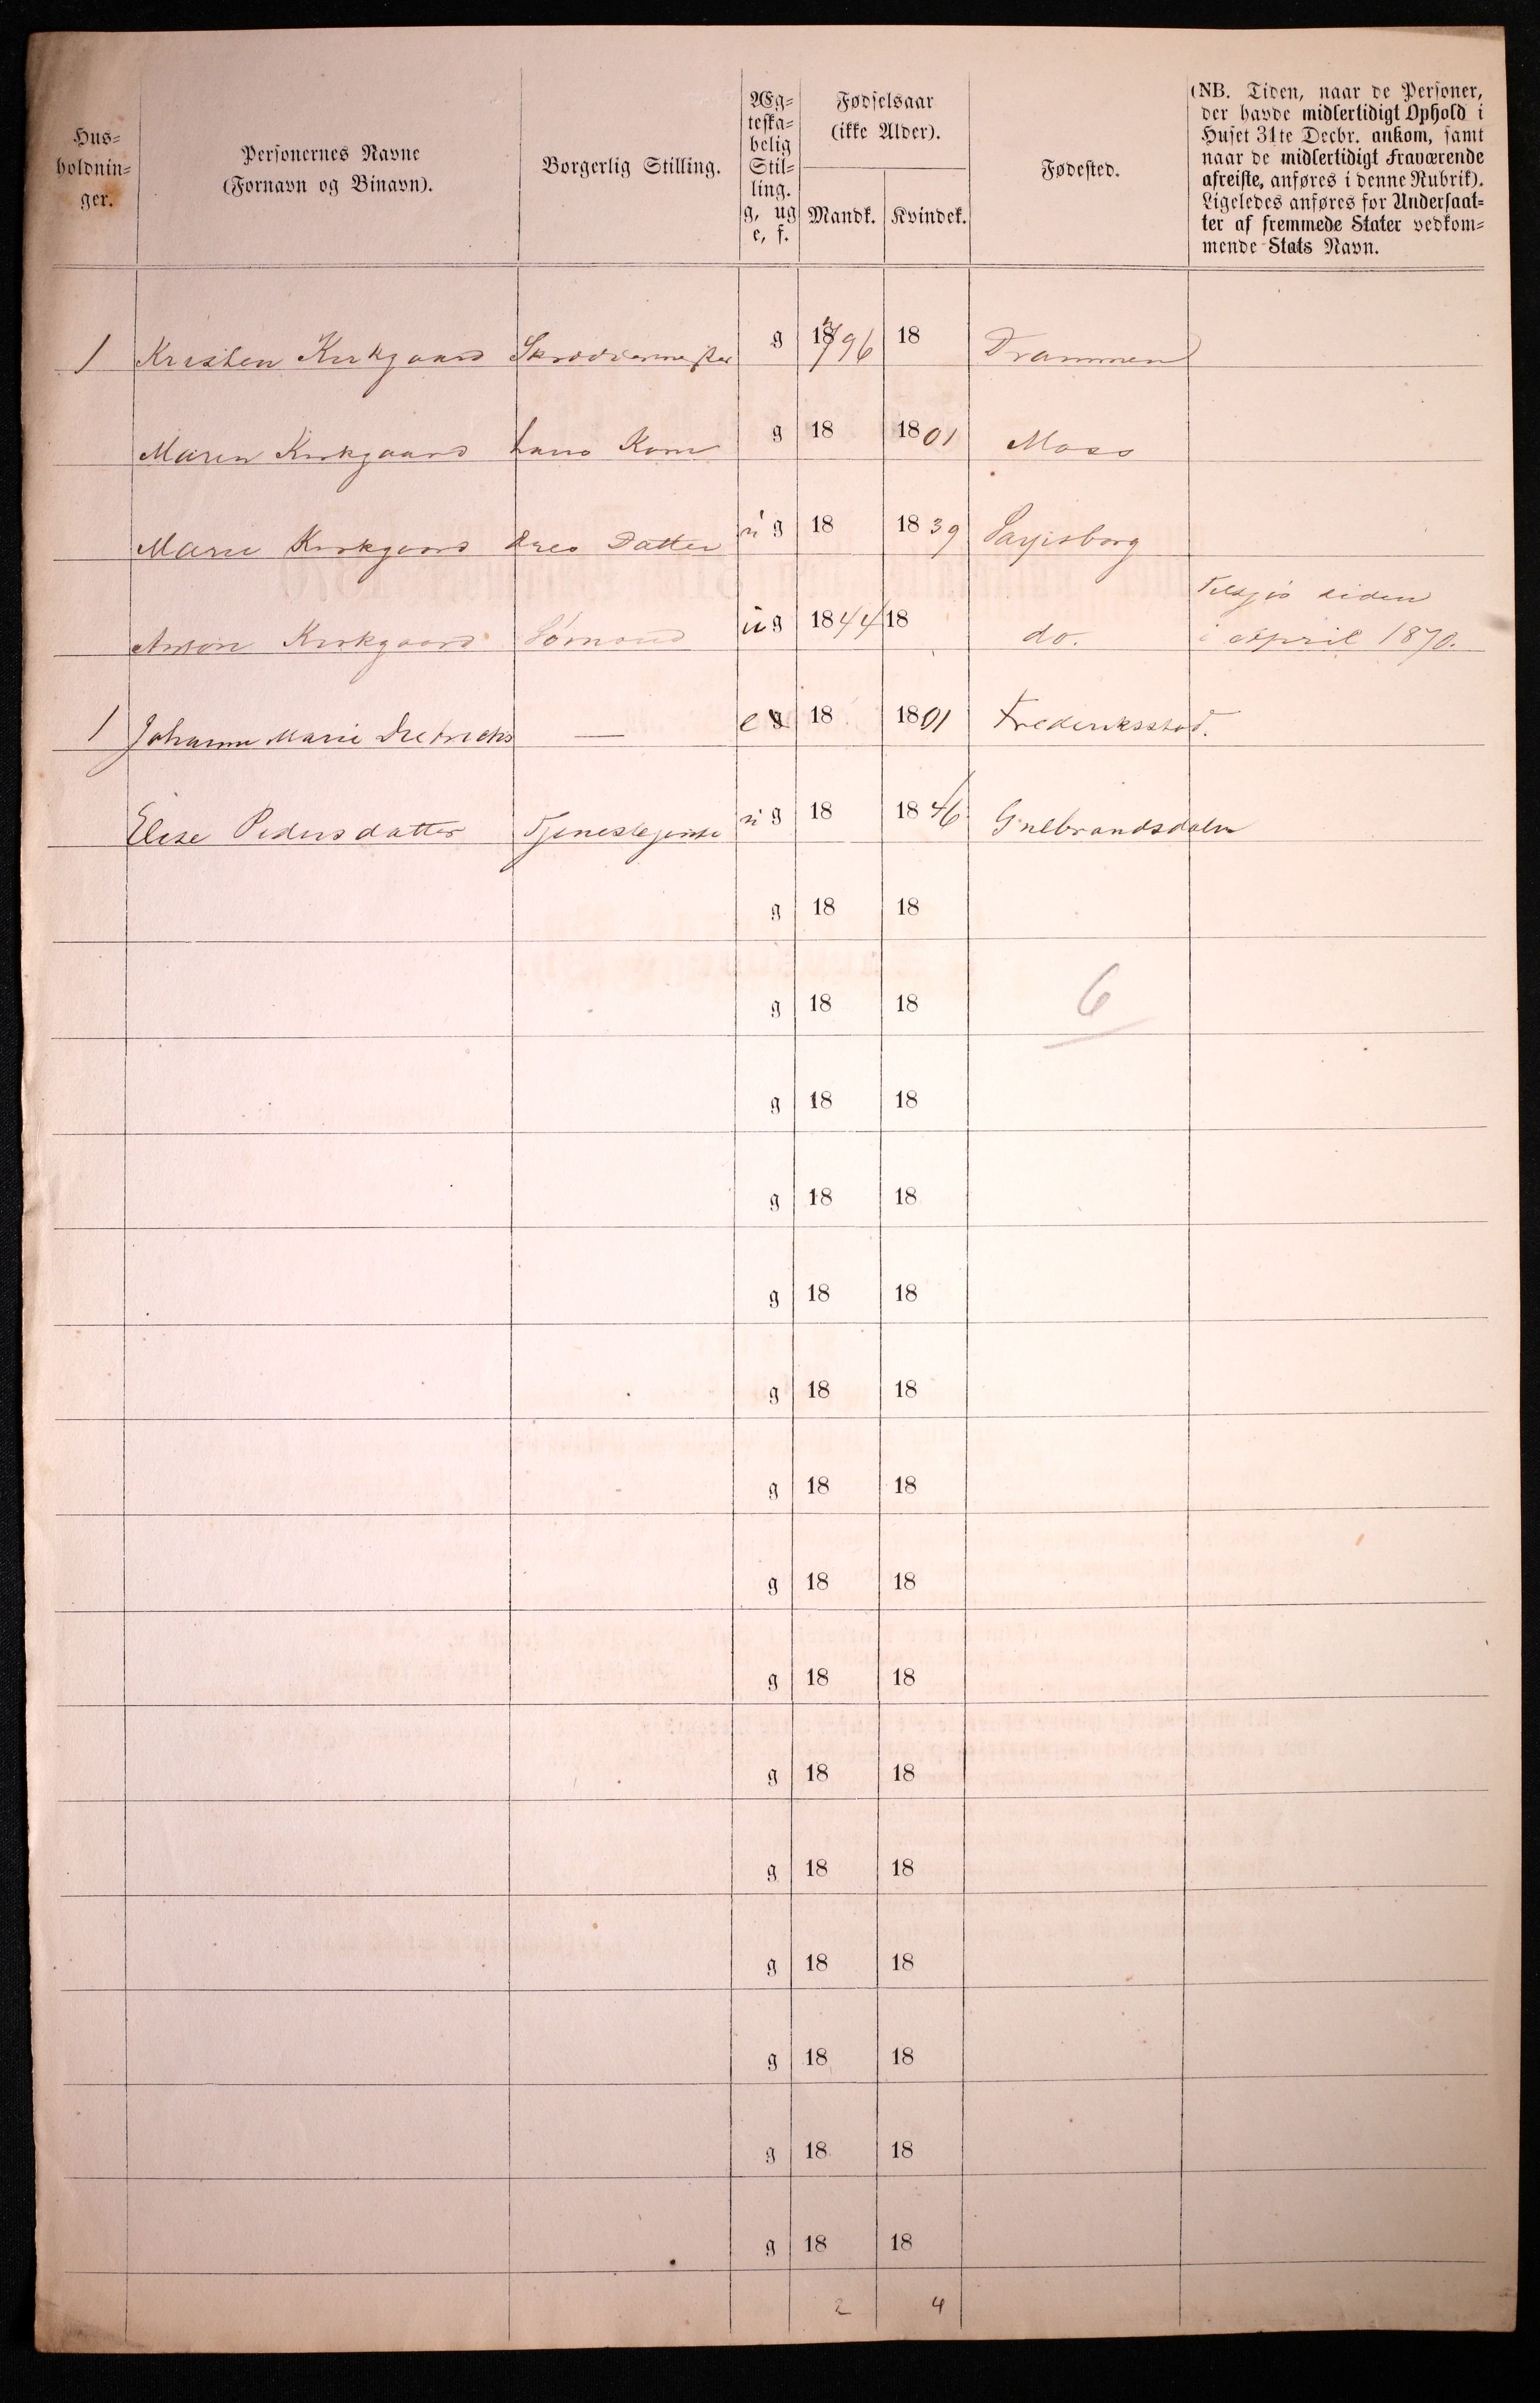 Hus=
holdnin=
ger.
Personernes Navne
(Fornavn og Binavn).
Borgerlig Stilling.
Æg=
teska=
belig
Stil=
ling.
g, ug
e, f.
Fødselsaar
(ikke Alder).
Mandk. Kvindek.
Fødested.
(NB. Tiden, naar de Personer,
der havde midlertidigt Ophold i
Huset 31te Decbr. ankom, samt
naar de midlertidigt Fraværende
afreiste, anføres i denne Rubrik).
Ligeledes anføres for Undersaat=
ter af fremmede Stater vedkom=
mende Stats Navn.
1 Kristen Kirkgaard Skræddermester g 1796 18 Drammen
Maren Kirkgaard hans Kone g 18 1801 Moss
Marie Kirkgaard Datter ug 18 1839 Sarpsborg
Anton Kirkgaard Sömand ug 1844 18 do. Tilsjös siden
i April 1870.
1 Johanne Marie Dietrichs — e 18 1801 Frederiksstad.
Elise Pedersdatter Tjenestepige ug 18 1846 Gulbrandsdalen
g 18 18
g 18 18 6
g 18 18
g 18 18
g 18 18
g 18 18
g 18 18
g 18 18
g 18 18
g 18 18
g 18 18
g 18 18
g 18 18
g 18 18
g 18 18
2 4